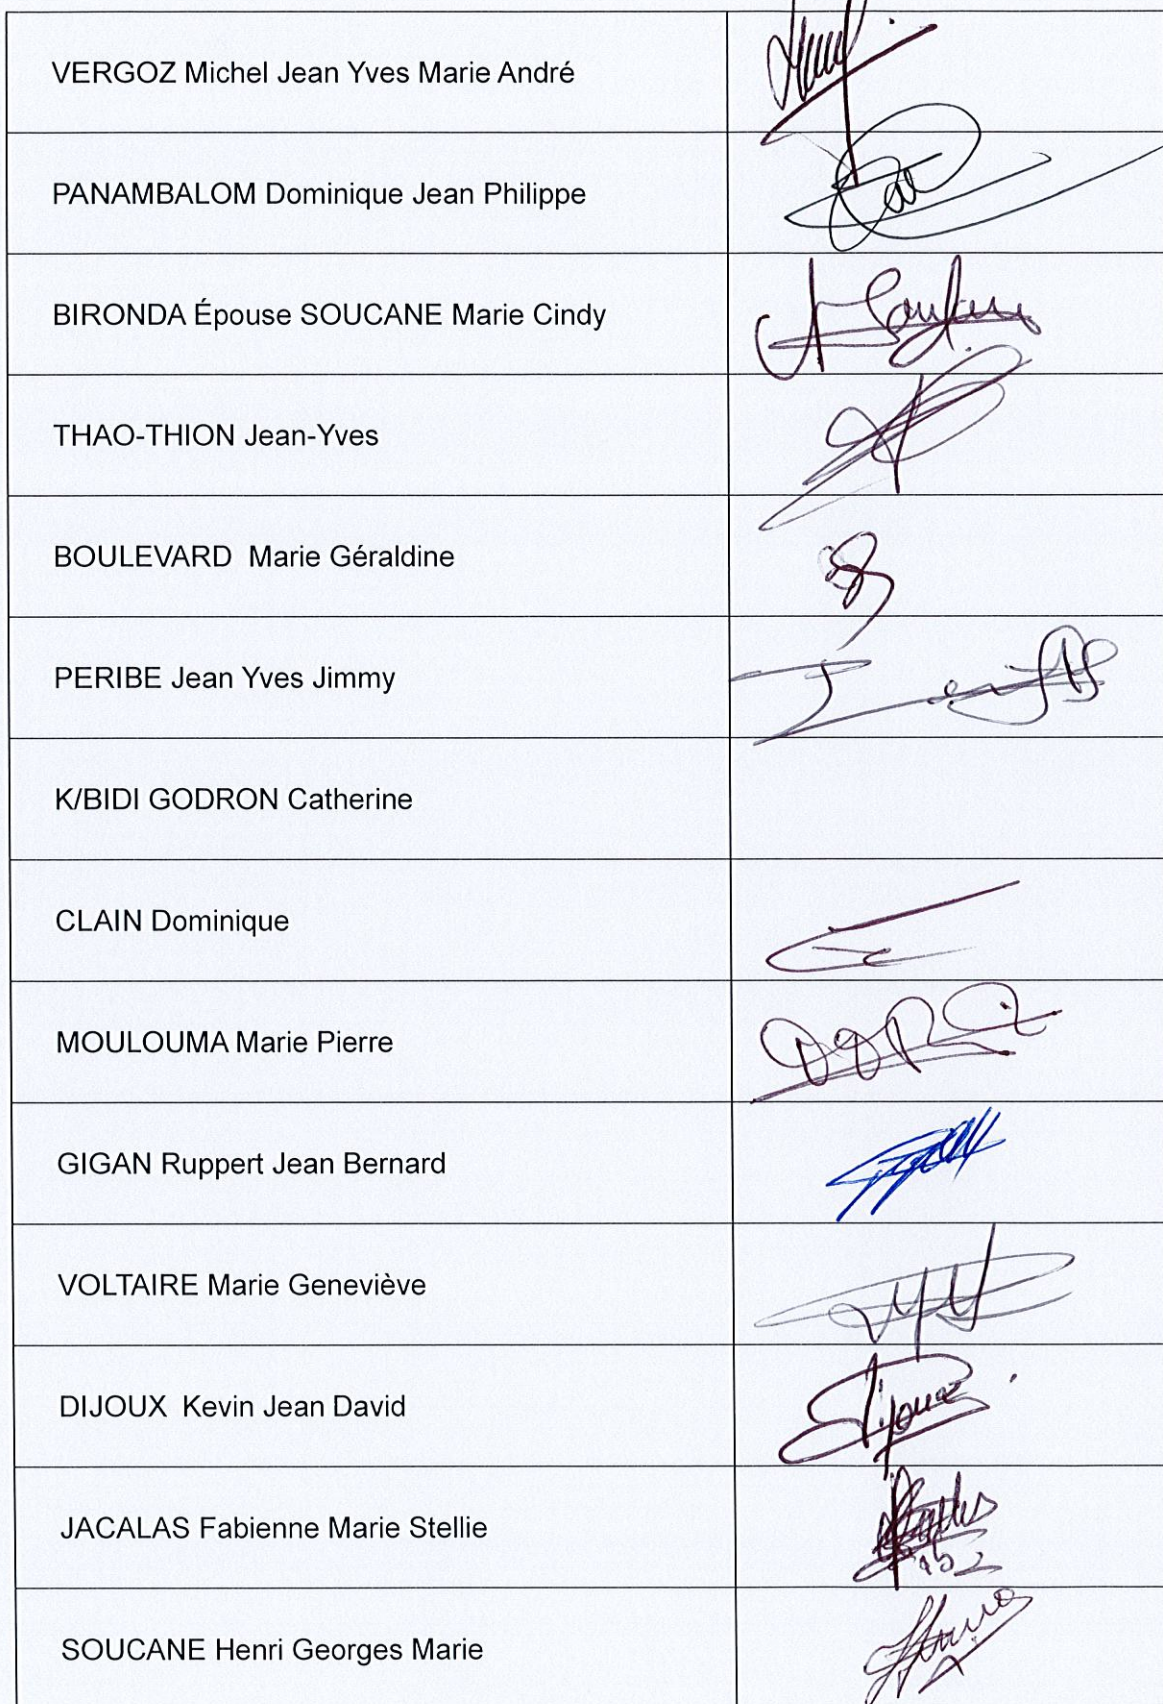 VERGOZ Michel Jean Yves Marie André
PANAMBALOM Dominique Jean Philippe
BIRONDA Épouse SOUCANE Marie Cindy
THAO-THION Jean-Yves
BOULEVARD Marie Géraldine
PERIBE Jean Yves Jimmy
K/BIDI GODRON Catherine
CLAIN Dominique
MOULOUMA Marie Pierre
GIGAN Ruppert Jean Bernard
VOLTAIRE Marie Geneviève
DIJOUX Kevin Jean David
JACALAS Fabienne Marie Stellie
SOUCANE Henri Georges Marie